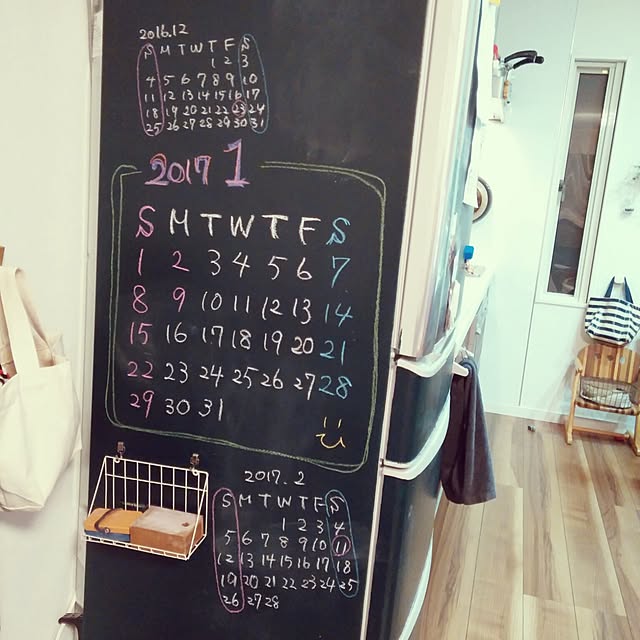 2016.12
S M T W T F S
1 2 3
4 5 6 7 8 9 10
11 12 13 14 15 16 17
18 19 20 21 22 23 24
25 26 27 28 29 30 31
2017 1
S M T W T F S
1 2 3 4 5 6 7
8 9 10 11 12 13 14
15 16 17 18 19 20 21
22 23 24 25 26 27 28
29 30 31
2017.2
S M T W T F S
1 2 3 4
5 6 7 8 9 10 11
12 13 14 15 16 17 18
19 20 21 22 23 24 25
26 27 28